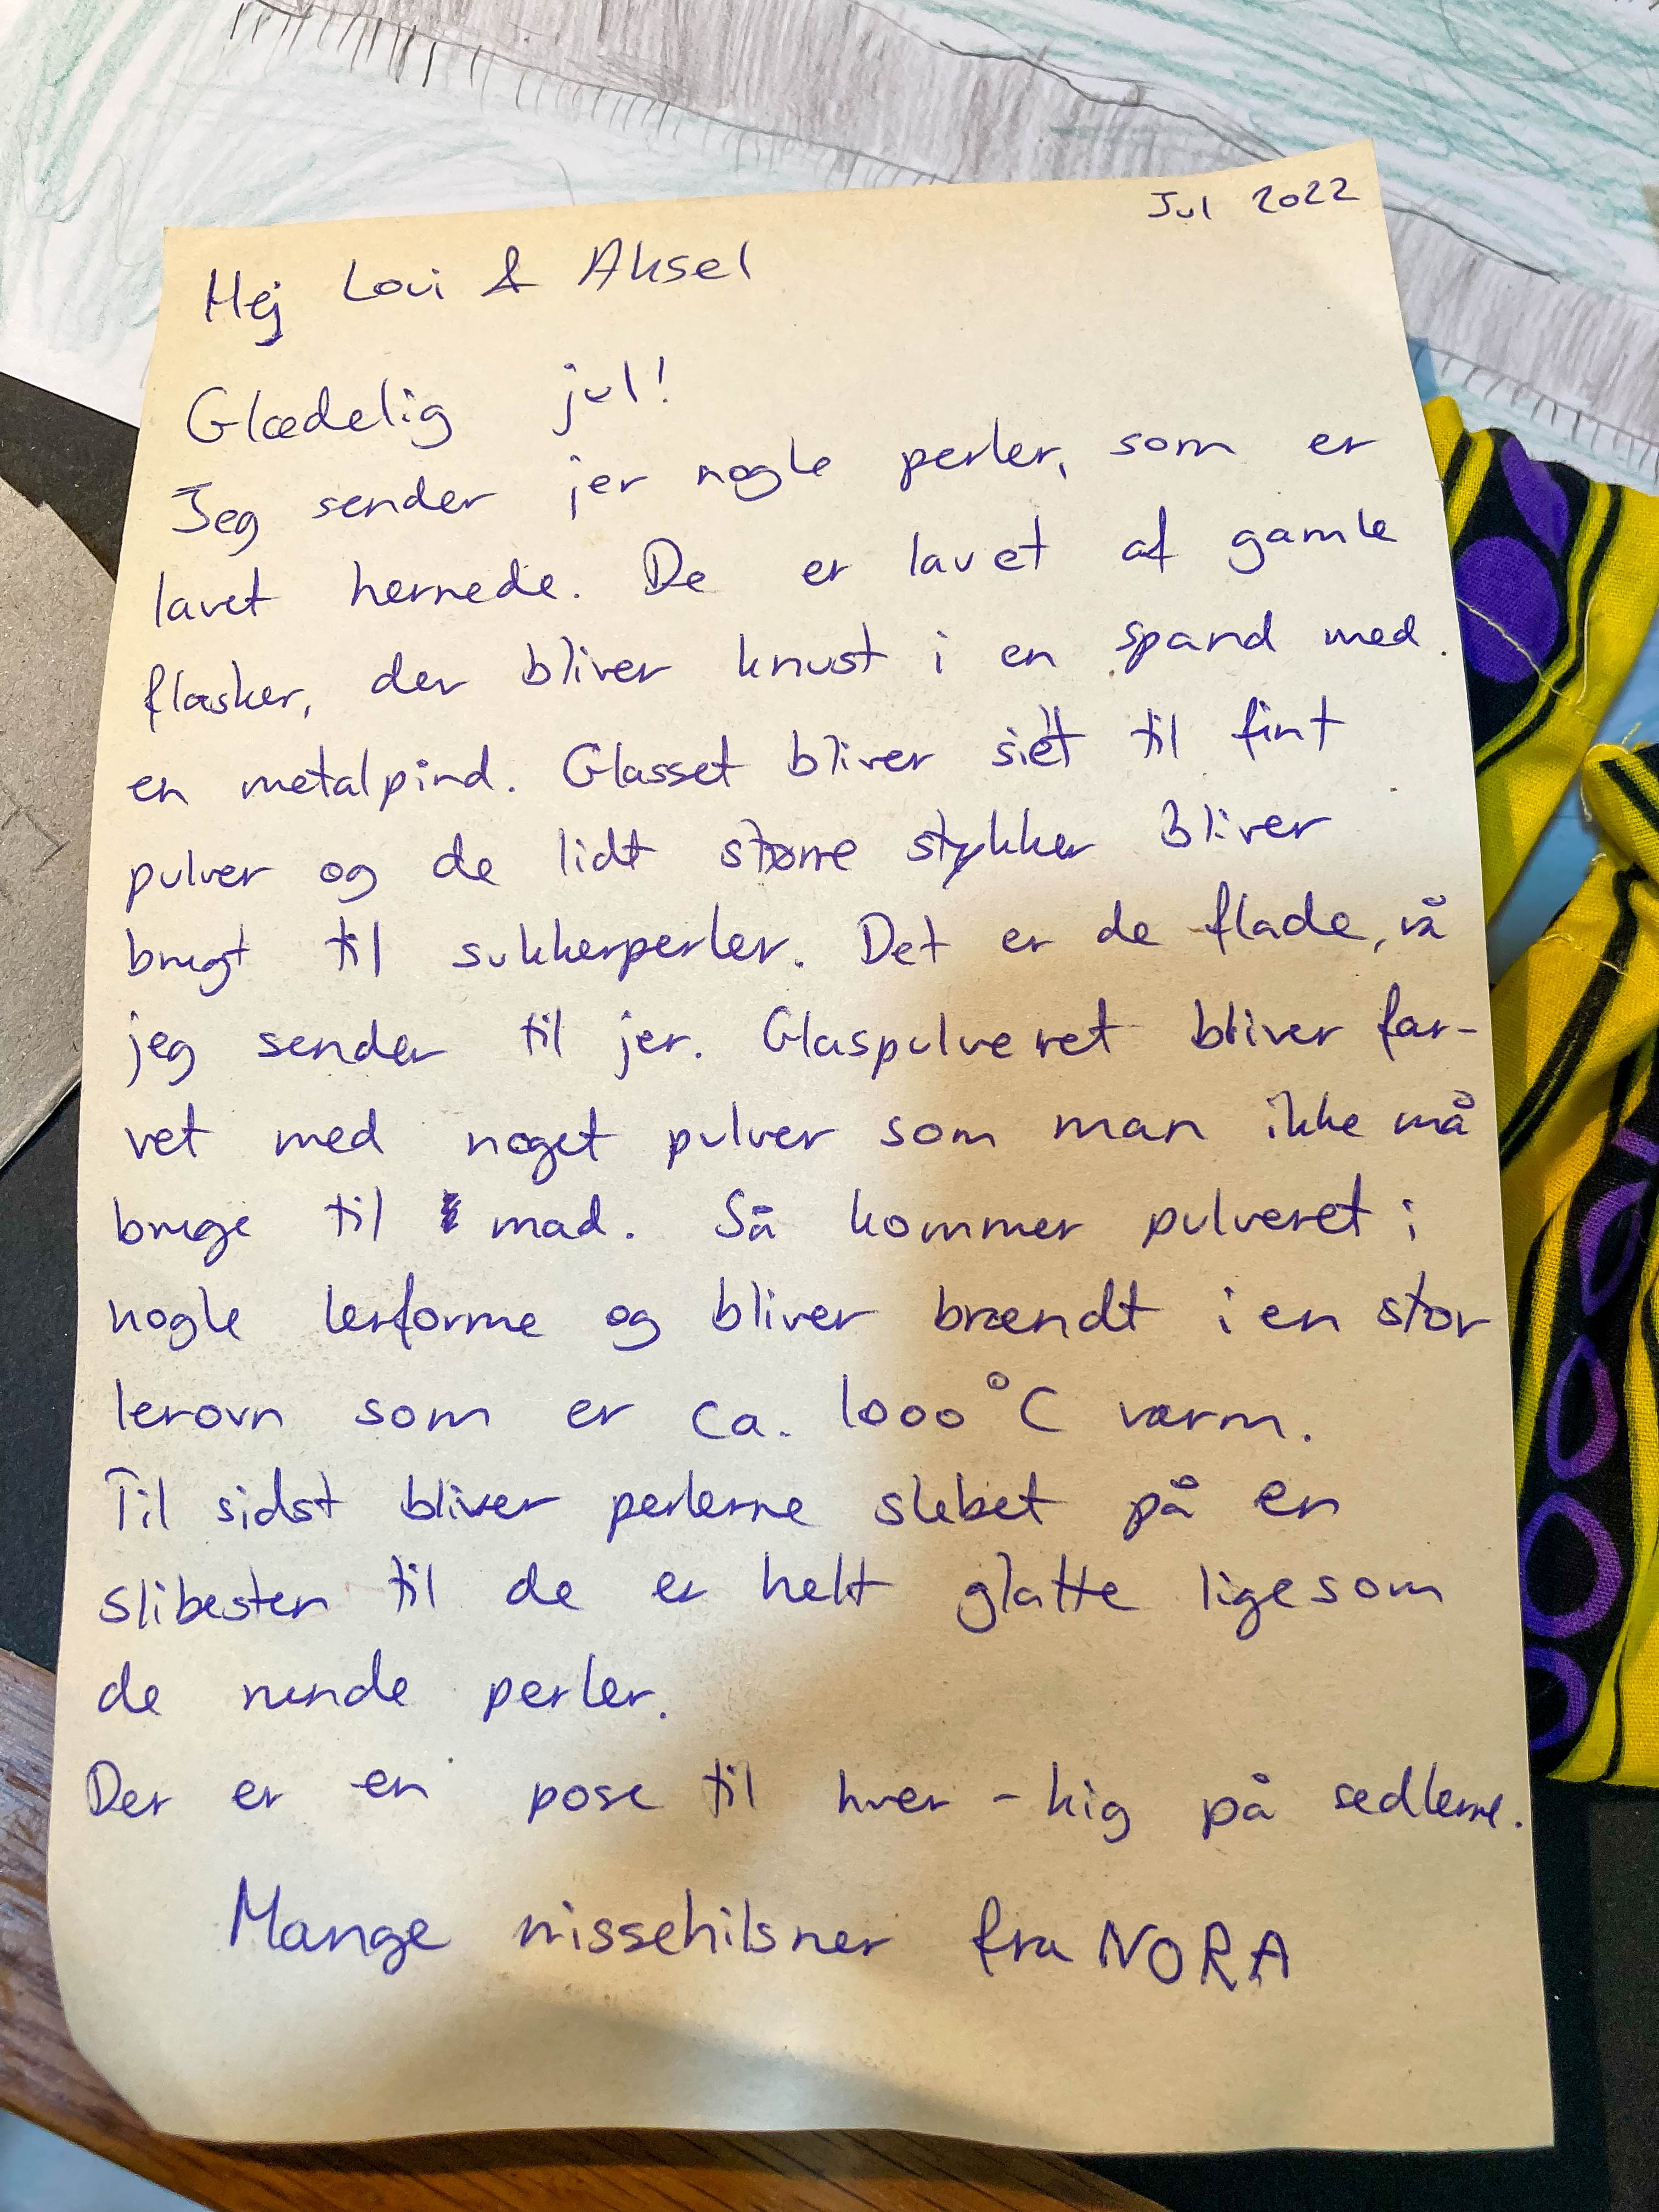 Jul 2022
Hej Lovi & Aksel
Glædelig jul!
Jeg sender jer nogle perler, som er
lavet hernede. De er lavet af gamle
flasker, der bliver knust i en spand med
en metalpind. Glasset bliver siet til fint
pulver og de lidt større stykker Bliver
brugt til sukkerperler. Det er de flade, rå
jeg sender til jer. Glaspulveret bliver far-
vet med noget pulver som man ikke må
bruge til mad. Så kommer pulveret i
nogle lerforme og bliver brændt i en stor
lerovn som er ca. 1000°C varm.
Til sidst bliver perlerne slebet på en
slibesten til de er helt glatte ligesom
de runde perler.
Der er en pose til hver - kig på sedlerne.
Mange nissehilsner fra NORA